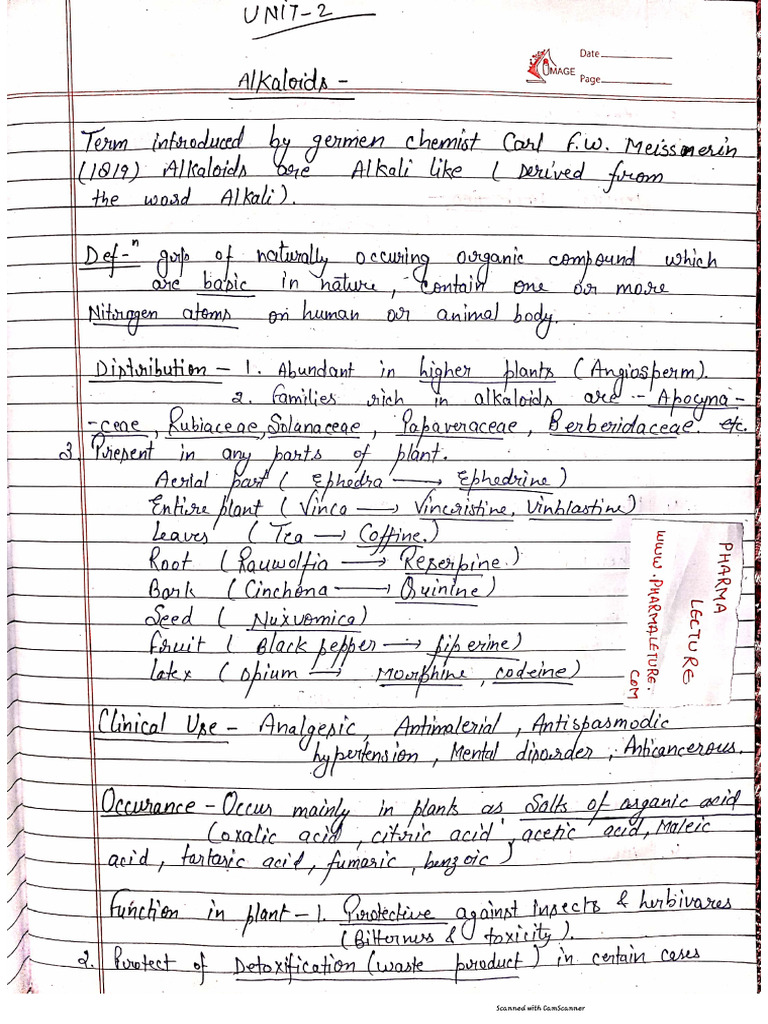 UNIT-2
Date
IMAGE
Page
Alkaloids -
Term introduced by germen chemist Carl F.W. Meissnerin
(1819) Alkaloids are Alkali like (Derived from
the word Alkali).
Def-n grp of naturally occuring organic compound which
are basic in nature, contain one or more
Nitrogen atoms on human or animal body.
Distribution - 1. Abundant in higher plants (Angiosperm).
2. families rich in alkaloids are :- Apocyna-
-ceae, Rubiaceae, Solanaceae, Papaveraceae, Berberidaceae. etc.
3. Present in any parts of plant.
Aerial part (Ephedra → Ephedrine)
Entire plant (Vinca → Vincristine, Vinblastine)
Leaves (Tea → Coffine.)
Root (Rauwolfia → Reserpine.)
Bark (Cinchona → Quinine)
Seed (Nuxvomica)
fruit (Black pepper → piperine)
latex (opium → Morphine, codeine)
PHARMA
LECTURE
WWW.PHARMALETURE.
COM
Clinical Use - Analgesic, Antimalerial, Antispasmodic
hypertension, Mental disorder, Anticancerous.
Occurance - Occur mainly in plants as Salts of organic acid
(oxalic acid, citric acid, acetic acid, Maleic
acid, tartaric acid, fumaric, benzoic)
Function in plant - 1. Protective against Insects & herbivares
(Bitterness & toxicity).
2. Protect of Detoxification (waste product) in certain cases
Scanned with CamScanner